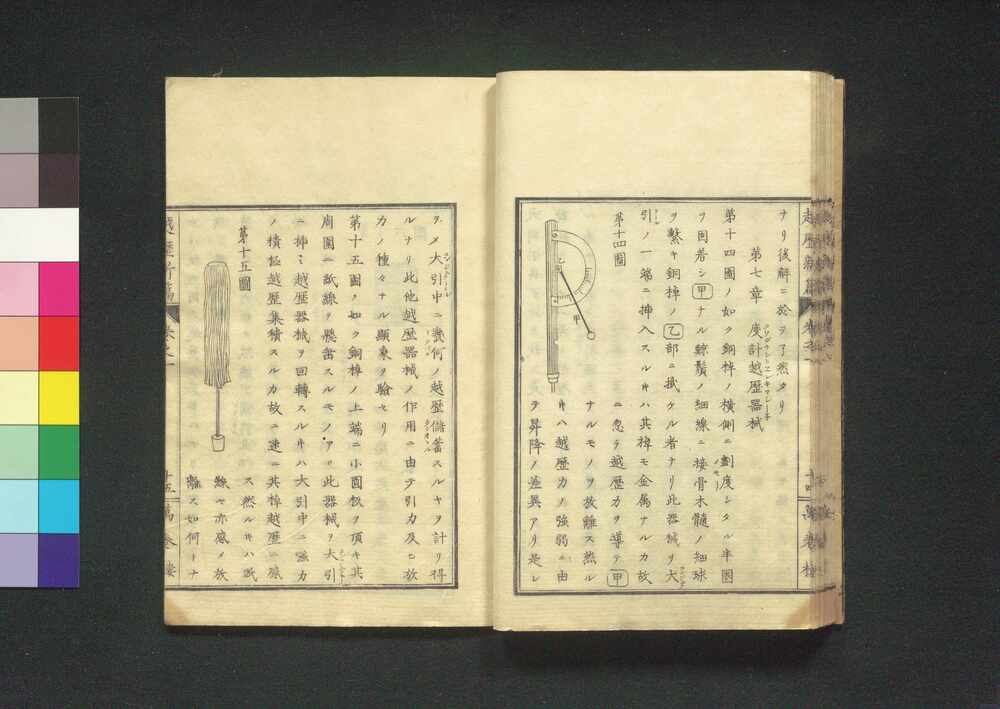 ナリ後觧ニ於テ了然タリ
第七章 度計越歴器械
第十四圖ノ如ク銅棹ノ横側ニ劃度シタル半圓
ヲ固着シ甲ナル鯨鬚ノ細線ニ接骨木髓ノ細球
ヲ繋キ銅棹ノ乙部ニ掛ケル者ナリ此器械ヲ大
引ノ一端ニ挿入スルキハ其棹モ金属ナルカ故
第十四圖
甲
乙
ニ忽チ越歴力ヲ導テ甲
ナルモノヲ放離ス然ル
キハ越歴力ノ強弱ニ由
テ昇降ノ差異アリ是レ
ヲメ大引中ニ幾何ノ越歴儲蓄スルヤヲ計リ得
ルナリ此他越歴器械ノ作用ニ由テ引力及ヒ放
力ノ種々ナル顯象ヲ驗セリ
第十五圖ノ如ク銅棹ノ上端ニ小圓板ヲ頂キ其
周圍ニ紙線ヲ懸畨スルモノアリ此器械ヲ大引
ニ挿ミ越歴器械ヲ回轉スルキハ大引中ニ強力
ノ積極越歴集積スルカ故ニ速ニ其棹越歴ニ感
第十五圖
ス然ルキハ紙
線モ亦感ノ放
離ス如何トナ